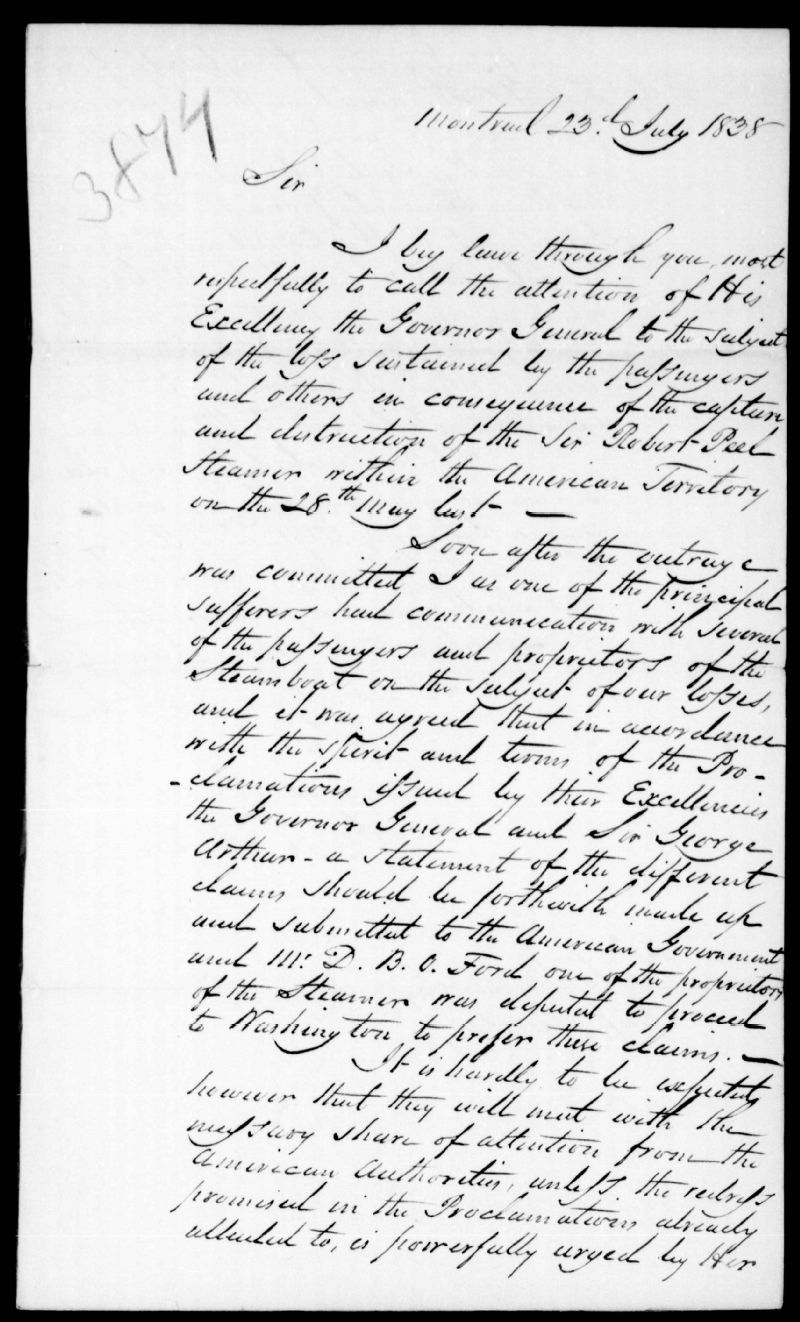 3874
Montreal 23.d July 1838
Sir
I beg leave through you, most
respectfully to call the attention of His
Excellency the Governor General to the subject
of the loss sustained by the passengers
and others in consequence of the capture
and destruction of the Sir Robert Peel
Steamer within the American Territory
on the 28.th May last —
Soon after the outrage
was committed I as one of the principal
sufferers had communication with several
of the passengers and proprietors of the
Steamboat on the subject of our losses,
and it was agreed that in accordance
with the spirit and terms of the Pro-
-clamations issued by their Excellencies
the Governor General and Sir George
Arthur - a statement of the different
claims should be forthwith made up
and submitted to the American Government
and Mr. D. B. O. Ford one of the proprietors
of the Steamer was deputed to proceed
to Washington to prefer these claims. —
It is hardly to be expected
however that they will meet with the
necessary share of attention from the
American Authorities, unless the redress
promised in the Proclamations already
alluded to, is powerfully urged by Her